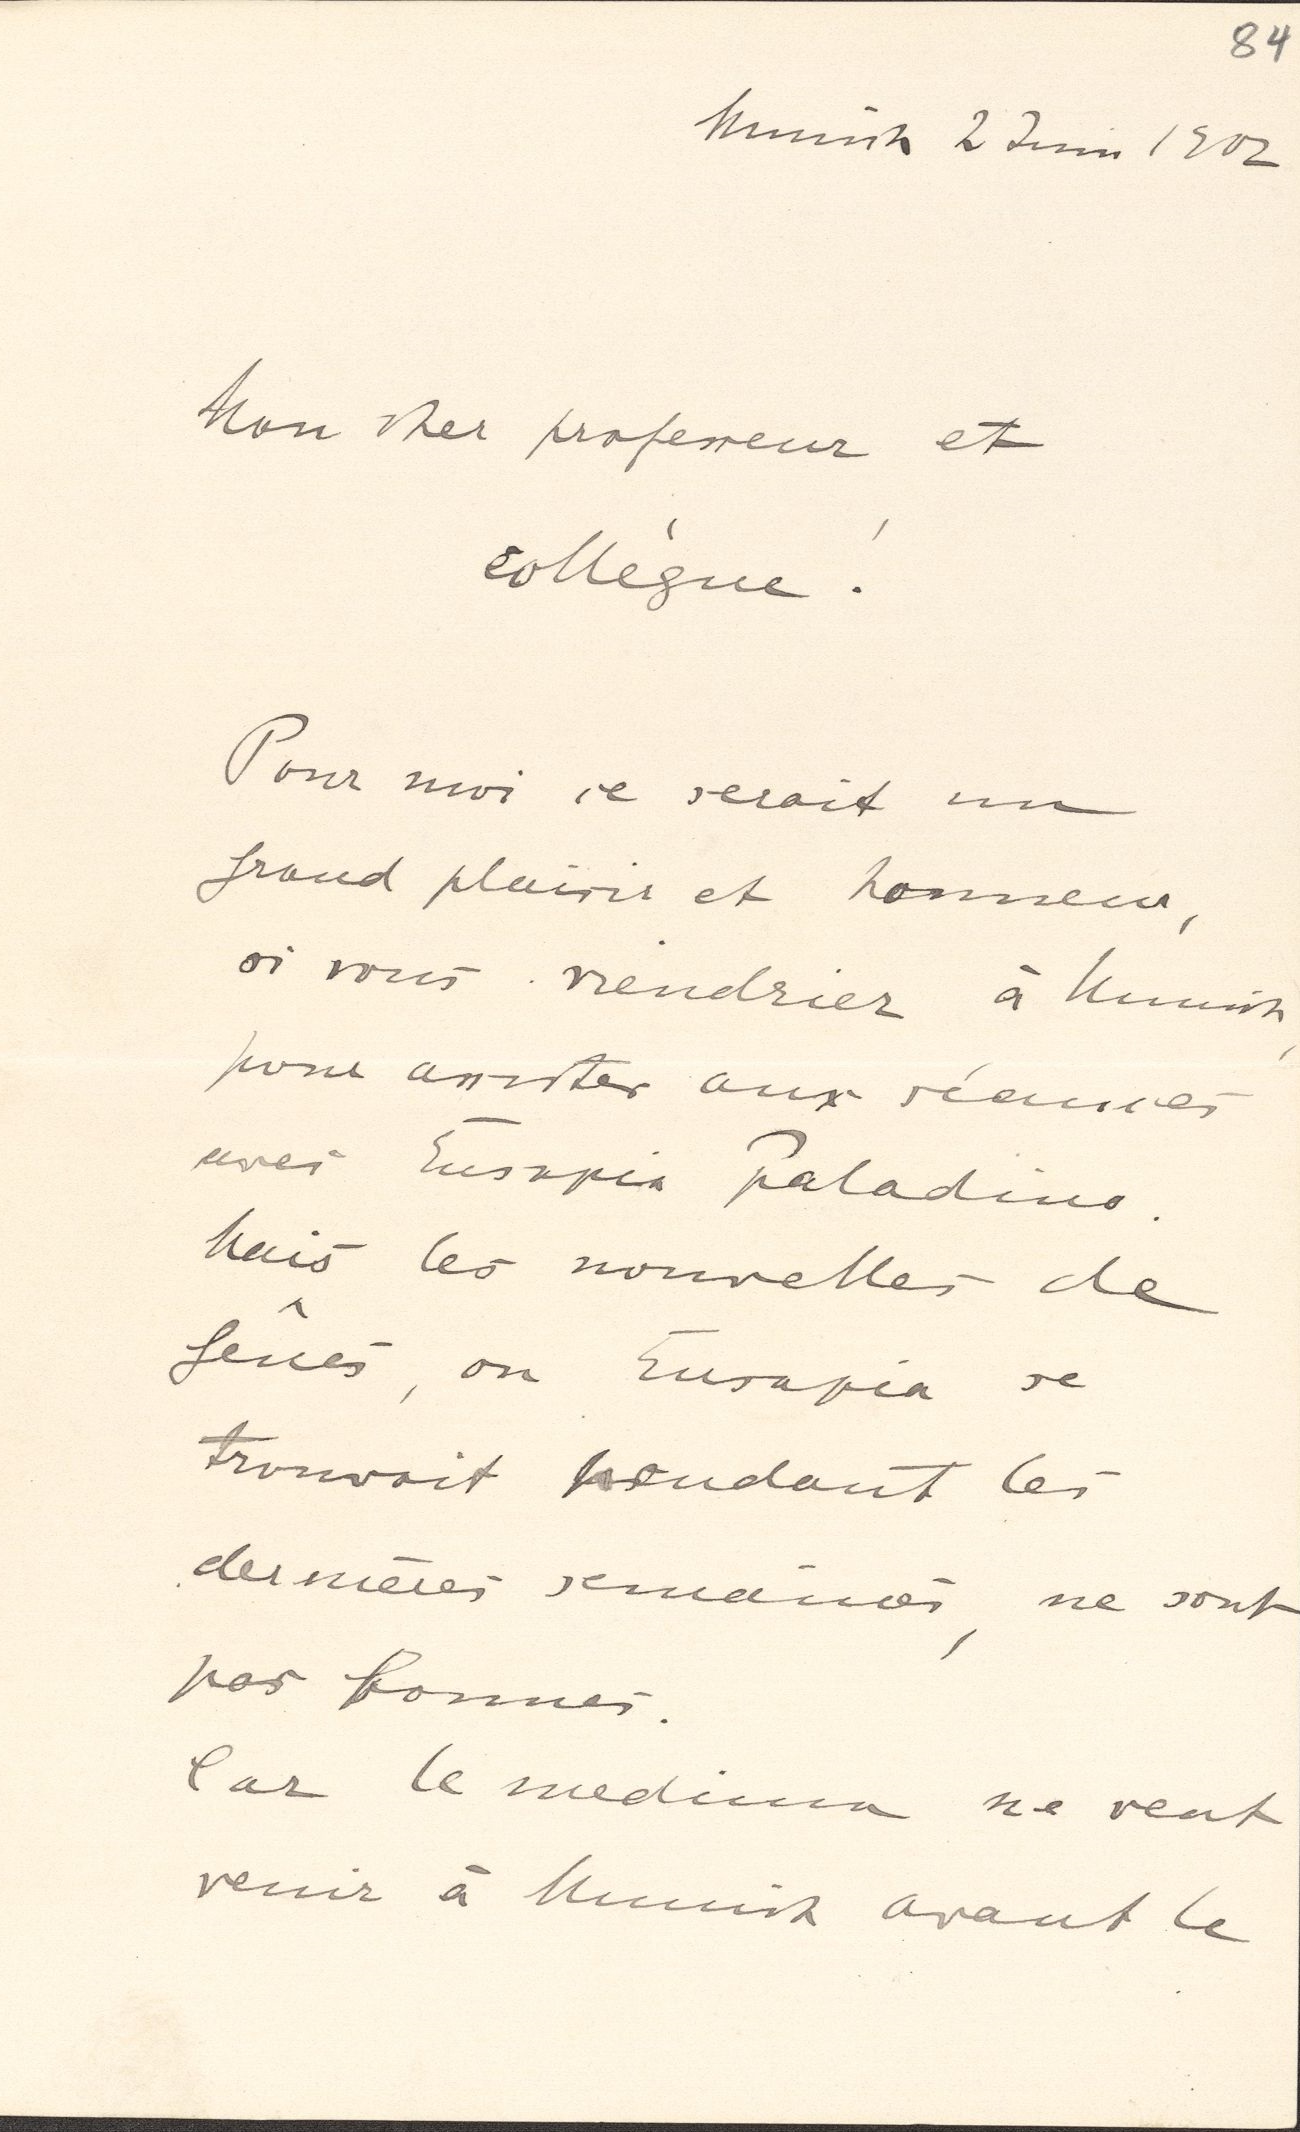 84
Munich 2 Juin 1902
Mon cher professeur et
collègue!
Pour moi ce serait un
grand plaisir et honneur,
si vous viendriez à Munich,
pour assister aux séances
avec Eusapia Paladino.
Mais les nouvelles de
Gênes, ou Eusapia se
trouvait pendant les
dernières semaines, ne sont
pas bonnes.
Car le medium ne veut
venir à Munich avant le